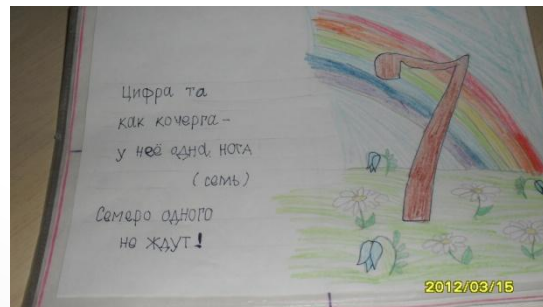 Цифра та
как кочерга –
у неё одна нога
(семь)
Семеро одного
не ждут!
2012/03/15